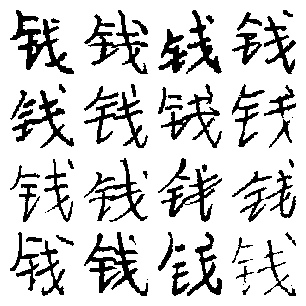 钱钱钱钱
钱钱钱钱
钱钱钱钱
钱钱钱钱